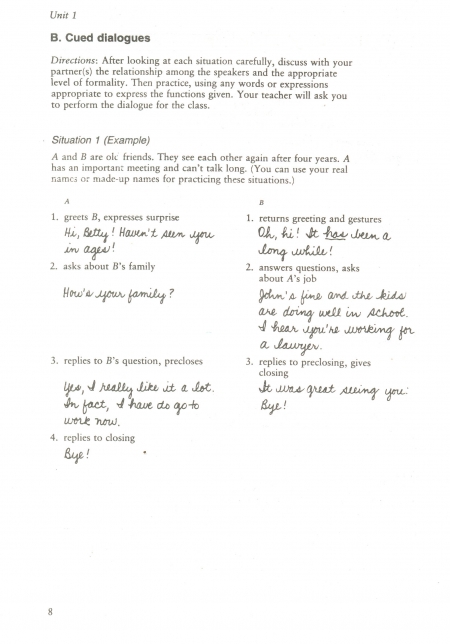 Unit 1
B. Cued dialogues
Directions: After looking at each situation carefully, discuss with your
partner(s) the relationship among the speakers and the appropriate
level of formality. Then practice, using any words or expressions
appropriate to express the functions given. Your teacher will ask you
to perform the dialogue for the class.
Situation 1 (Example)
A and B are old friends. They see each other again after four years. A
has an important meeting and can't talk long. (You can use your real
names or made-up names for practicing these situations.)
A
1. greets B, expresses surprise
Hi, Betty! Haven't seen you
in ages!
2. asks about B's family
How's your family?
3. replies to B's question, precloses
Yes, I really like it a lot.
In fact, I have to go to
work now.
4. replies to closing
Bye!
B
1. returns greeting and gestures
Oh, hi! It has been a
long while!
2. answers questions, asks
about A's job
John's fine and the kids
are doing well in school.
I hear you're working for
a lawyer.
3. replies to preclosing, gives
closing
It was great seeing you.
Bye!
8